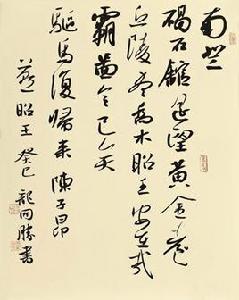 南登
碣石館遥望黄金臺
丘陵尽喬木昭王安在哉
霸圖今已矣
驅馬復歸来陳子昂
燕昭王癸巳龍開勝書